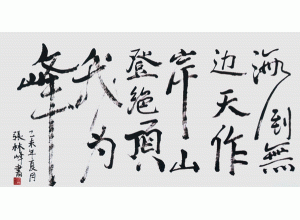 海到無
边天作
岸山
登絕頂
我为
峰
乙未年夏月
張林峰書